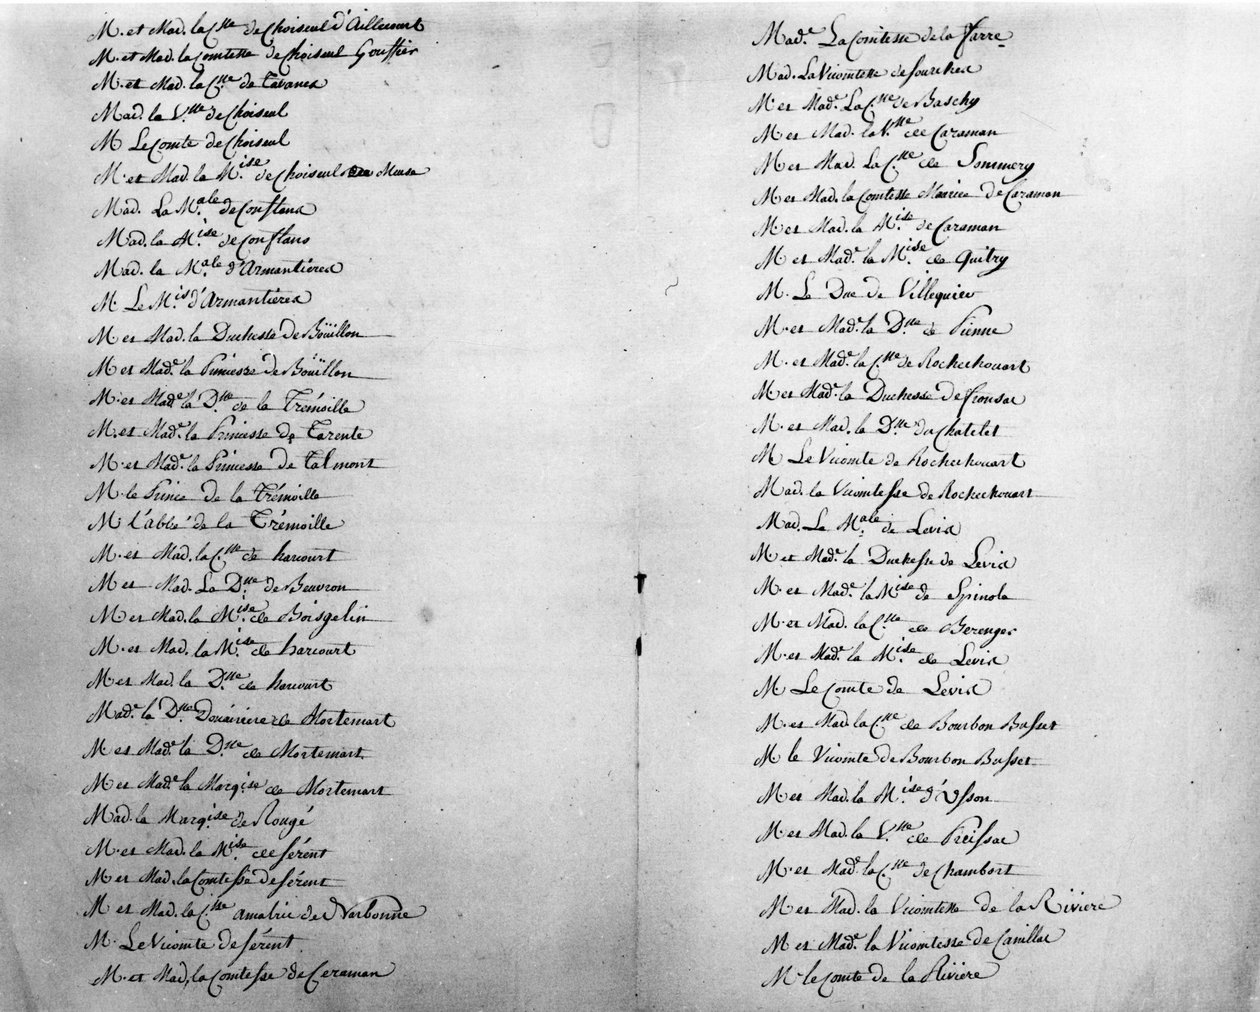 M. et Mad. la C.sse de Choiseul d'Aillecourt
M. et Mad. la Comtesse de Choiseul Gouffier
M. et Mad. la C.sse de Tavanes
Mad. la V.sse de Choiseul
M Le Comte de Choiseul
M. et Mad. la M.ise de Choiseul Meuse
Mad. La M.ale de Conflans
Mad. la M.ise de Conflans
Mad. la M.ale d'Armantieres
M. Le M.is d'Armantiéres
M et Mad. la Duchesse de Boüillon
M et Mad.e la Princesse de Boüillon
M. et Mad.e la D.sse de la Trémoille
M. et Mad.e la Princesse de Tarente
M. et Mad.e la Princesse de Talmont
M. le Prince de la Trémoille
M. l'abbé de la Trémoille
M. et Mad. la C.sse de harcourt
M et Mad. La D.sse de Beuvron
M et Mad. la M.ise de Boisgelin
M. et Mad. la M.ise de harcourt
M et Mad. la D.sse de harcourt
Mad.e la D.sse Douairiere de Mortemart
M et Mad.e la D.sse de Mortemart
M et Mad.e la Marq.ise de Mortemart
Mad. la Marq.ise de Rougé
M. et Mad. la M.ise de Sérent
M et Mad. la Comtesse de Sérent
M et Mad. la C.sse amalric de Narbonne
M. Le Vicomte de Sérent
M. et Mad. la Comtesse de Ceraman
Mad.e La Comtesse de la Farre
Mad. La Vicomtesse de Sourches
M. et Mad.e La C.sse de Baschy
M et Mad. la V.sse de Caraman
M et Mad. La C.sse de Sommery
M et Mad. la Comtesse Maurice de Caraman
M et Mad. la M.ise de Caraman
M et Mad.e la M.ise de Quitry
M. Le Duc de Villequier
M. et Mad.e la D.sse de Pienne
M. et Mad.e la C.sse de Rochechouart
M et Mad.e la Duchesse de fronsac
M. et Mad. la D.sse du Chatelet
M Le Vicomte de Rochechouart
Mad. la Vicomtesse de Rochechouart
Mad. La M.ale de Levis
M et Mad.e la Duchesse de Levis
M et Mad.e la M.ise de Spinola
M. et Mad. la C.sse de Berenger
M. et Mad.e la M.ise de Levis
M Le Comte de Levis
M. et Mad. la C.sse de Bourbon Busset
M le Vicomte de Bourbon Busset
M et Mad. la M.ise d'Usson
M. et Mad. la V.sse de Preissac
M. et Mad.e la C.sse de Chambort
M. et Mad. la Vicomtesse de la Riviere
M et Mad.e la Vicomtesse de Canillac
M. le Comte de la Riviere